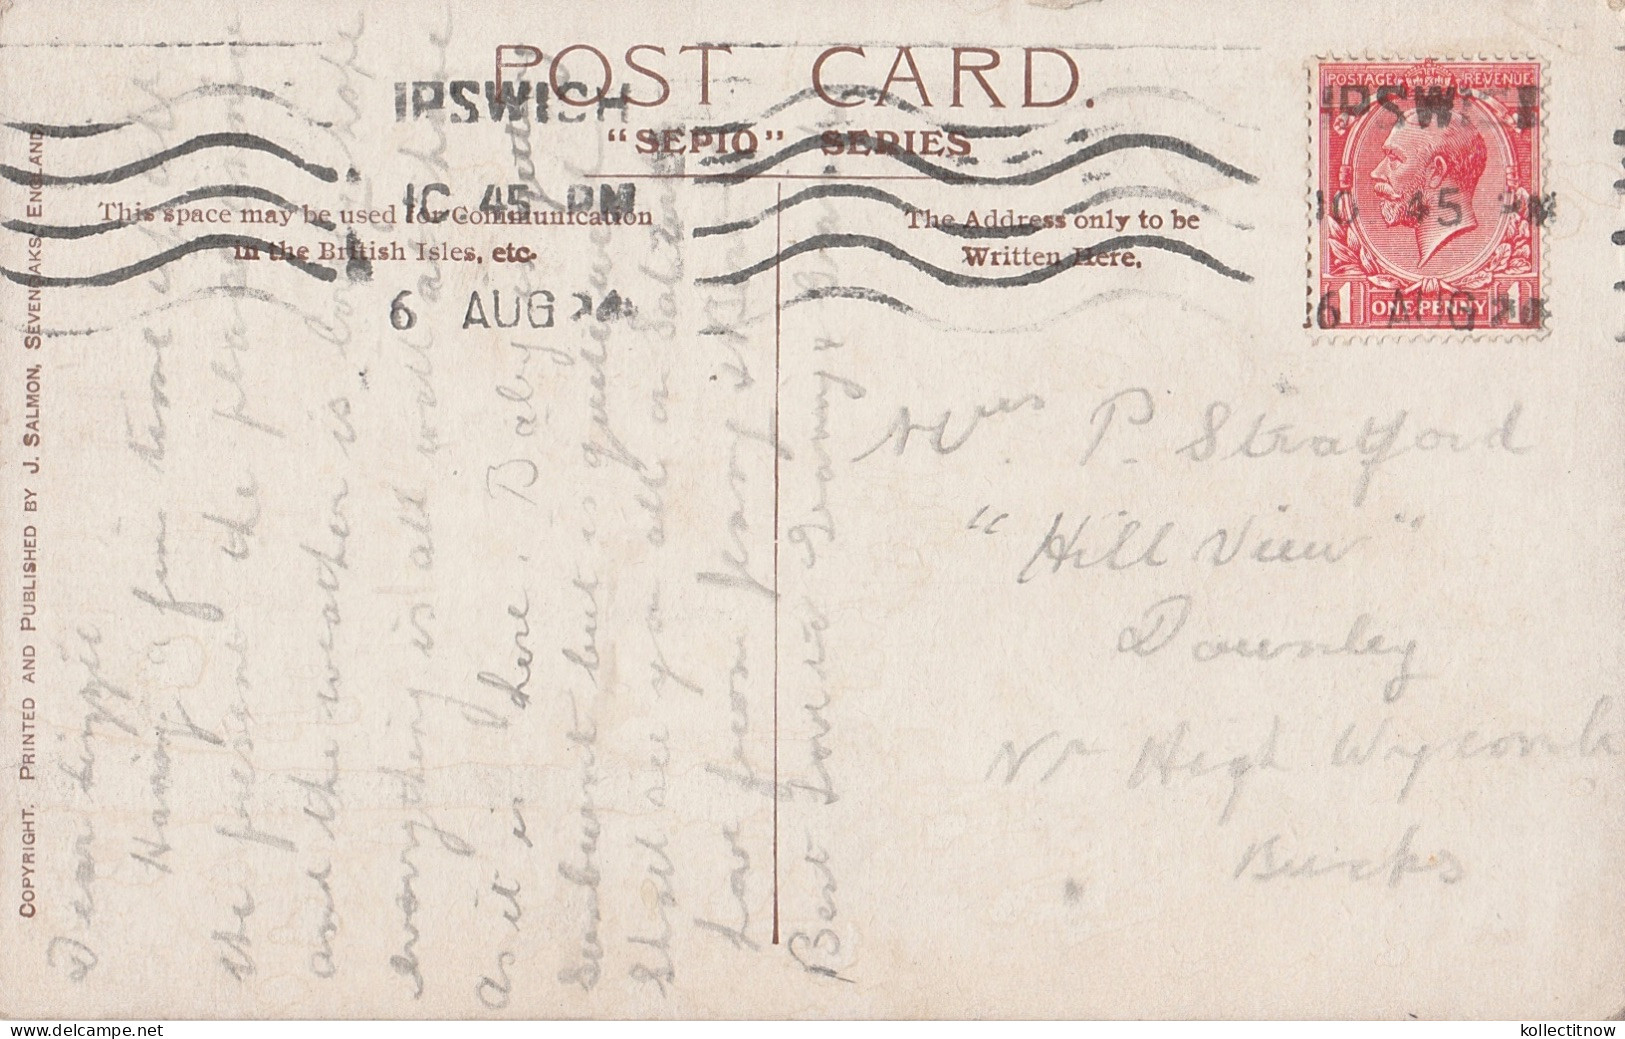 POST CARD.
"SEPIO" SERIES
IPSWICH
10 45 PM
6 AUG 24
This space may be used for Communication
in the British Isles, etc.
The Address only to be
Written Here.
POSTAGE REVENUE
IPSWICH
10 45 PM
1 ONE PENNY 1
6 AUG 24
COPYRIGHT. PRINTED AND PUBLISHED BY J. SALMON, SEVENOAKS, ENGLAND
Dear Lizzie
Having fine time
the present the place is
and the weather is lovely hope
everything is all well at home
as it is here. Baby
Sunburnt but is quite well
Shall see you all on Saturday
Love from Jenny &
Best Love to Granny &
Mrs P. Stratford
"Hill View"
Downley
Nr High Wycombe
Bucks
delcampe.net
kollectitnow